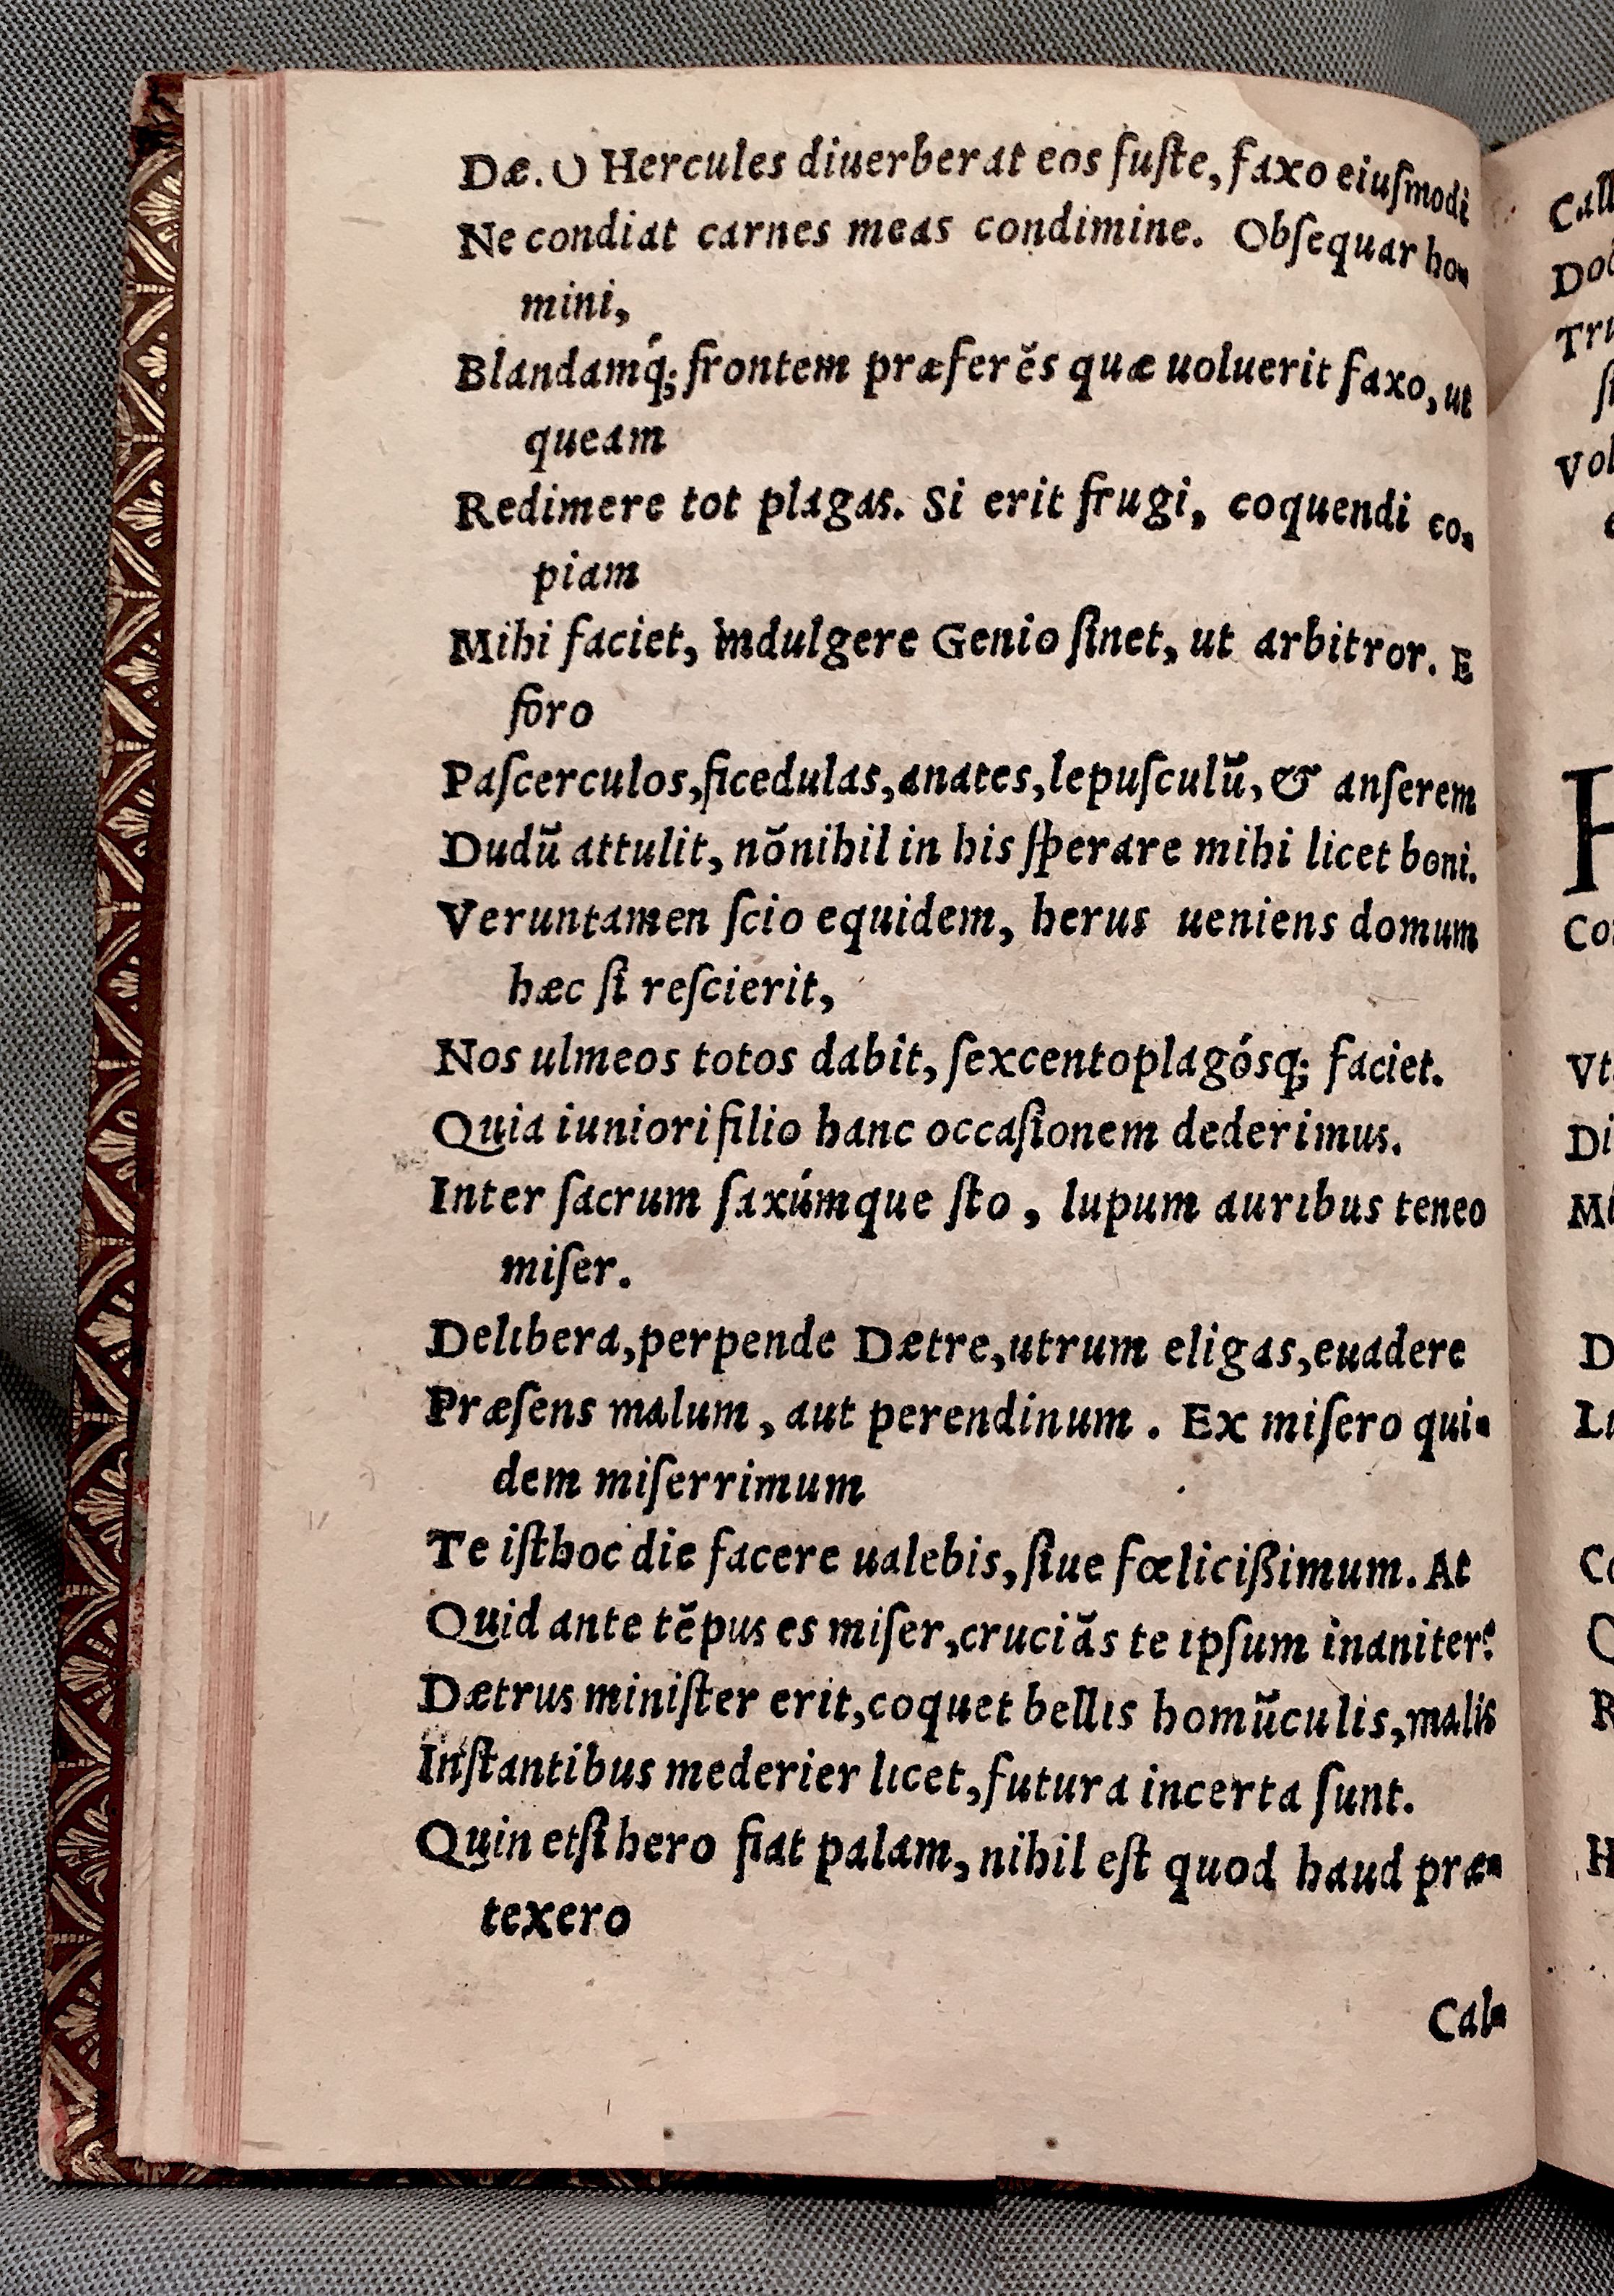 Dæ. O Hercules diuerberat eos ſuſte, faxo eiuſmodi
Ne condiat carnes meas condimine. Obſequar ho-
mini,
Blandamq́; frontem præferẽs quæ uoluerit faxo, ut
queam
Redimere tot plagas. Si erit frugi, coquendi co-
piam
Mihi faciet, indulgere Genio ſinet, ut arbitror. E
foro
Paſcerculos, ficedulas, anates, lepuſculũ, & anſerem
Dudũ attulit, nõnihil in his ſperare mihi licet boni.
Veruntamen ſcio equidem, herus ueniens domum
hæc ſi reſcierit,
Nos ulmeos totos dabit, ſexcentoplagósq; faciet.
Quia iuniori filio hanc occaſionem dederimus.
Inter ſacrum ſaxúmque ſto, lupum auribus teneo
miſer.
Delibera, perpende Dætre, utrum eligas, euadere
Præſens malum, aut perendinum. Ex miſero qui-
dem miſerrimum
Te iſthoc die facere ualebis, ſiue fœlicißimum. At
Quid ante tẽpus es miſer, cruciãs te ipſum inaniter?
Dætrus miniſter erit, coquet bellis homũculis, malis
Inſtantibus mederier licet, futura incerta ſunt.
Quin etſi hero fiat palam, nihil eſt quod haud præ-
texero
Cal-